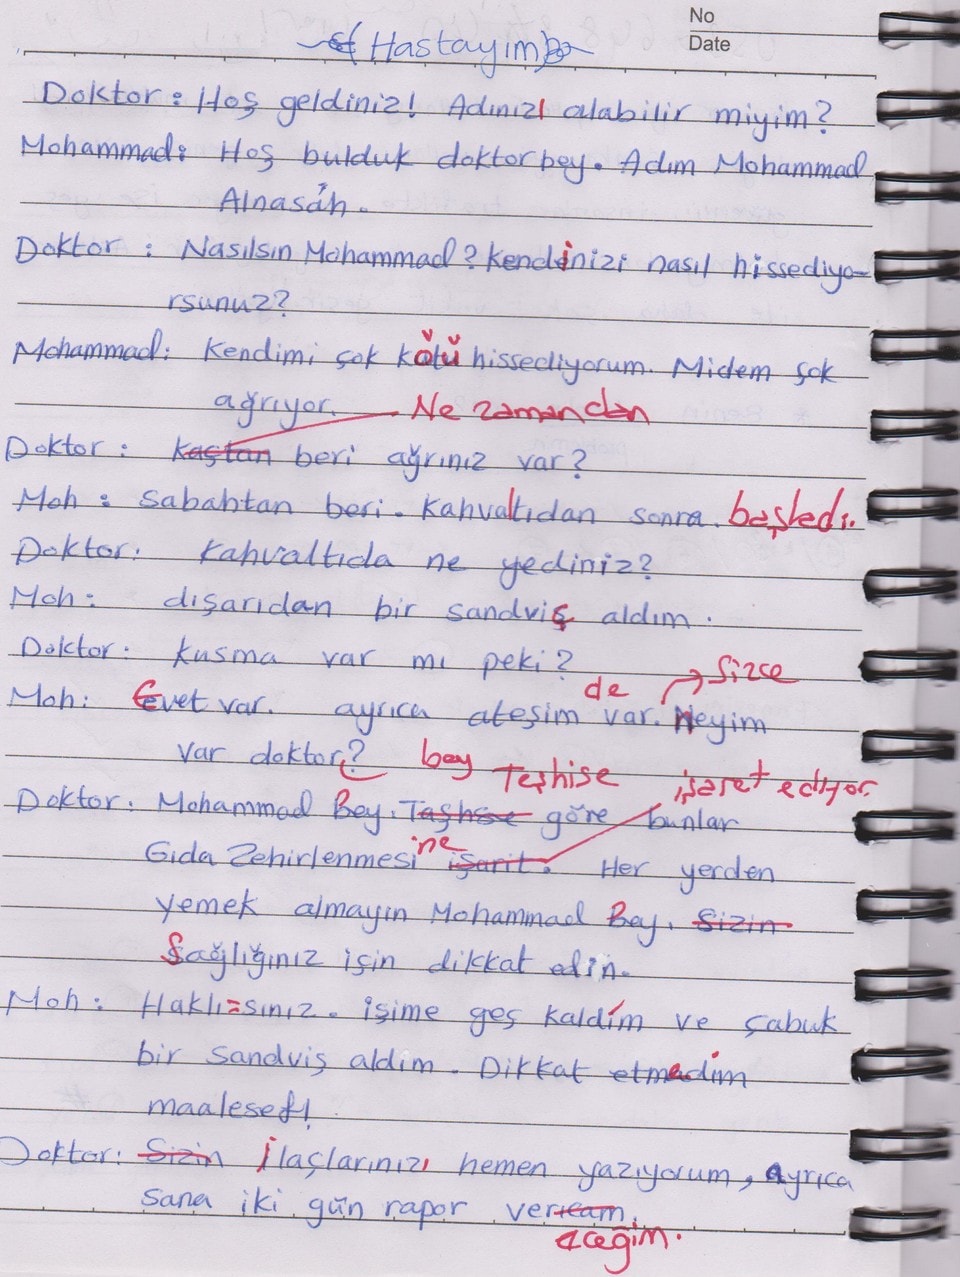 No
Date
Hastayım
Doktor: Hoş geldiniz! Adınızı alabilir miyim?
Mohammad: Hoş bulduk doktor bey. Adım Mohammad
Alnasáh.
Doktor: Nasılsın Mohammad? kendinizi nasıl hissediyo-
rsunuz?
Mohammad: Kendimi çok kötü hissediyorum. Midem çok
ağrıyor. Ne zamandan
Doktor: kaştan beri ağrınız var?
Moh: Sabahtan beri. Kahvaltıdan sonra. başladı.
Doktor: Kahvaltıda ne yediniz?
Moh: dışarıdan bir sandviç aldım.
Doktor: Kusma var mı peki?
de Sizce
Moh: Evet var. ayrıca ateşim var. Neyim
var doktor? bey
Teşhise işaret ediyor.
Doktor: Mohammad Bey. Taşhise göre bunlar
Gıda Zehirlenmesi ne işarit. Her yerden
yemek almayın Mohammad Bey. Sizin
Sağlığınız için dikkat edin.
Moh: Haklı=sınız. işime geş kaldím ve çabuk
bir sandviş aldım. Dikkat etmedim
maalesef!
Doktor: Sizin İlaçlarınızı hemen yazıyorum, Ayrıca
sana iki gün rapor vericam.
aceğim.